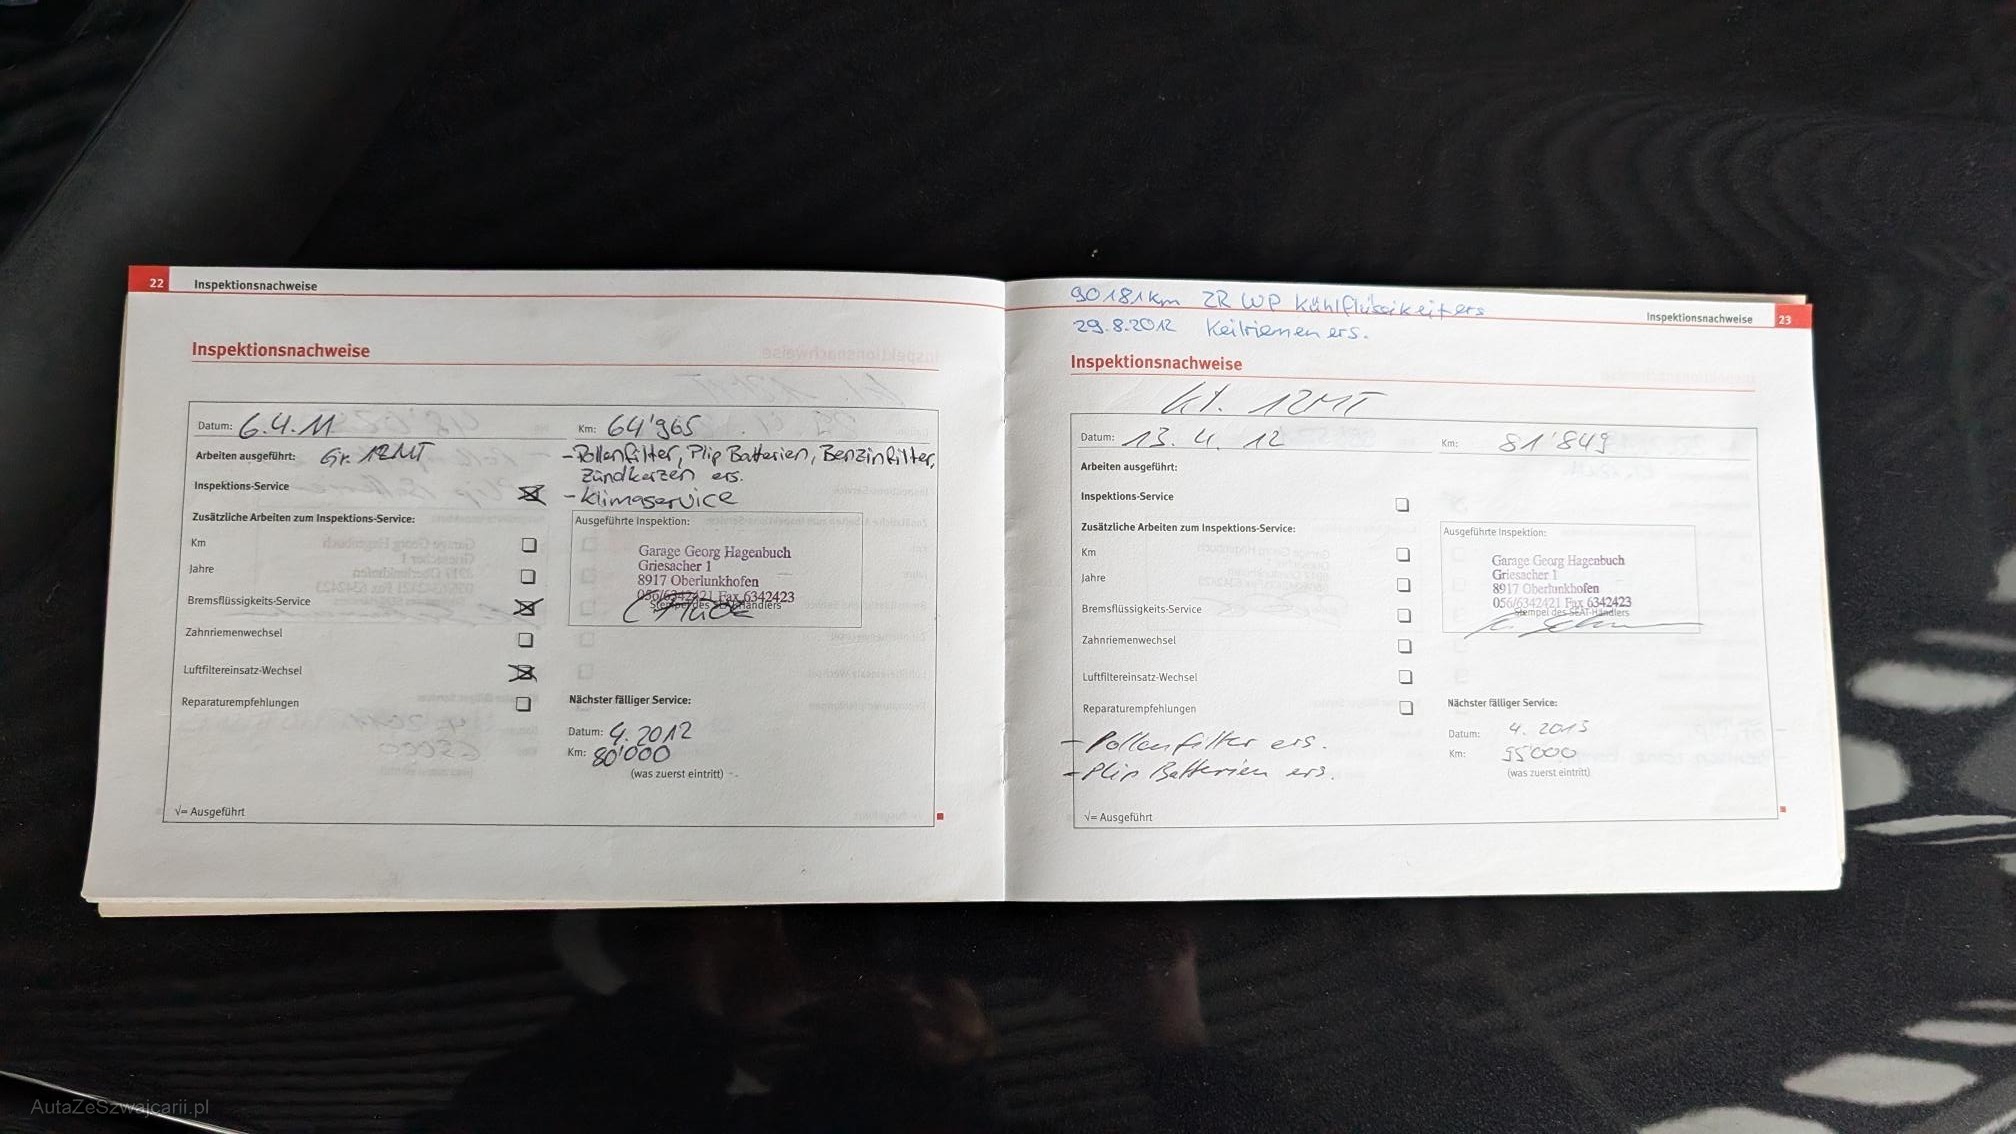 22 Inspektionsnachweise
Inspektionsnachweise
Datum: 6.4.11 Km: 64'965
Arbeiten ausgeführt: Gr. 12MT
- Pollenfilter, Plip Batterien, Benzinfilter,
Zündkerzen ers.
Inspektions-Service
- Klimaservice
Zusätzliche Arbeiten zum Inspektions-Service:
Km
Jahre
Bremsflüssigkeits-Service
Zahnriemenwechsel
Luftfiltereinsatz-Wechsel
Reparaturempfehlungen
Ausgeführte Inspektion:
Garage Georg Hagenbuch
Griesacher 1
8917 Oberlunkhofen
056/6342421 Fax 6342423
Stempel des SEAT-Händlers
Nächster fälliger Service:
Datum: 4.2012
Km: 80'000
(was zuerst eintritt)
√= Ausgeführt
90181km ZR WP Kühlflüssigkeit ers
29.8.2012 Keilriemen ers.
Inspektionsnachweise 23
Inspektionsnachweise
Kl. 12MT
Datum: 13. 4. 12 Km: 81'849
Arbeiten ausgeführt:
Inspektions-Service
Zusätzliche Arbeiten zum Inspektions-Service:
Km
Jahre
Bremsflüssigkeits-Service
Zahnriemenwechsel
Luftfiltereinsatz-Wechsel
Reparaturempfehlungen
- Pollenfilter ers.
- Plip Batterien ers.
Ausgeführte Inspektion:
Garage Georg Hagenbuch
Griesacher 1
8917 Oberlunkhofen
056/6342421 Fax 6342423
Stempel des SEAT-Händlers
Nächster fälliger Service:
Datum: 4. 2013
Km: 95'000
(was zuerst eintritt)
√= Ausgeführt
AutaZeSzwajcarii.pl